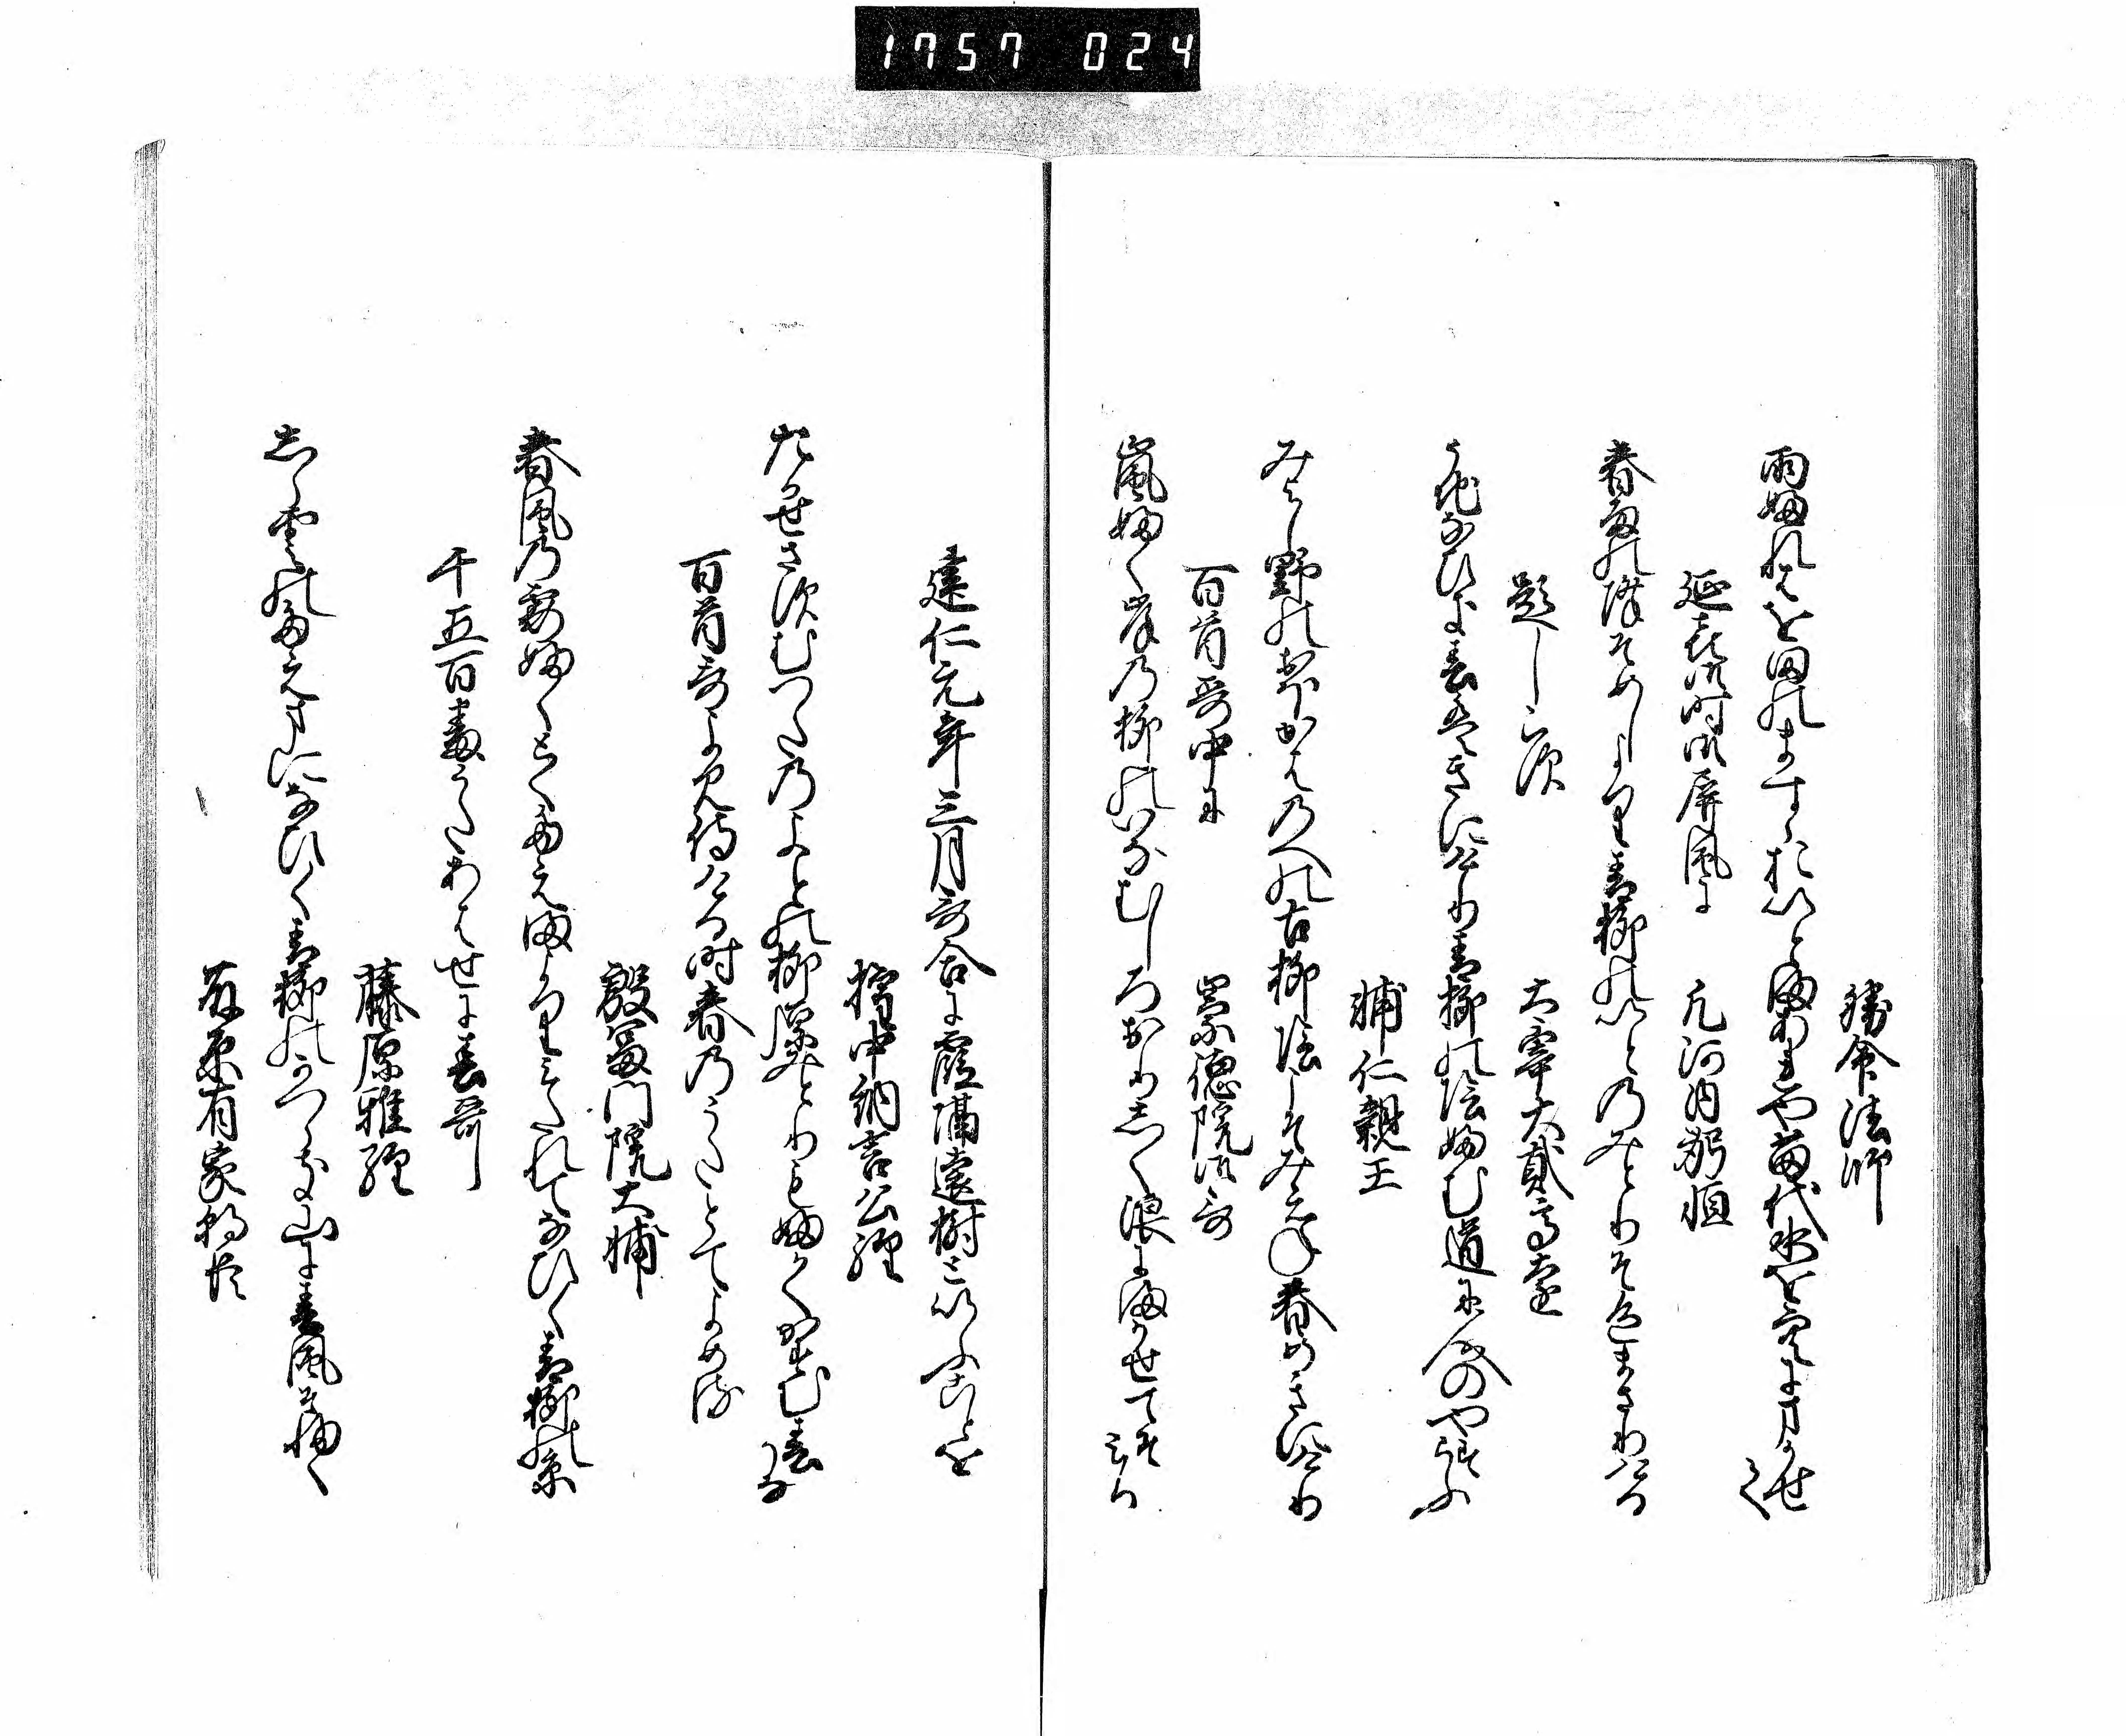 1757 024
勝命法師
雨ふれは小田のますらおいとまあれや苗代水を空にまかせて
延喜御時御屏風に　凡河内躬恒
春雨の降そめしより青柳のいとのみとりそ色まさりける
題しらす　大宰大貳高遠
うちなひき春はきにけり青柳の陰ふむ道に人のやすらふ
輔仁親王
みよし野のおほかはのへの古柳陰こそみえね春めきにけり
百首哥中に　崇徳院御哥
嵐ふく岸の柳のいなむしろおりしく浪にまかせてそみる
建仁元年三月哥合に霞隔遠樹といふことを
権中納言公経
たかせさすむつたのよとの柳原みとりもふかくかすむ春かな
百首哥よみ侍ける時春のうたとてよめる
殷冨門院大輔
春風の霞ふくとくたえまよりみたれてなひく青柳の糸
千五百番うたあはせに春哥
藤原雅経
しら雲のたえまになひく青柳のかつらき山に春風そ吹く
藤原有家朝臣